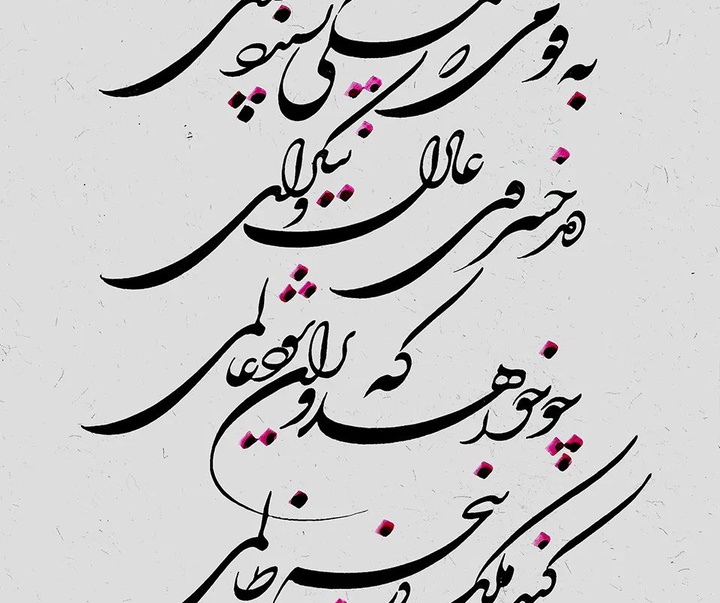 به قومی که نیکی پسندد خدای
دهد خسروی عادل و نیک رای
چو خواهد که ویران شود عالمی
کند ملک در پنجه ظالمی